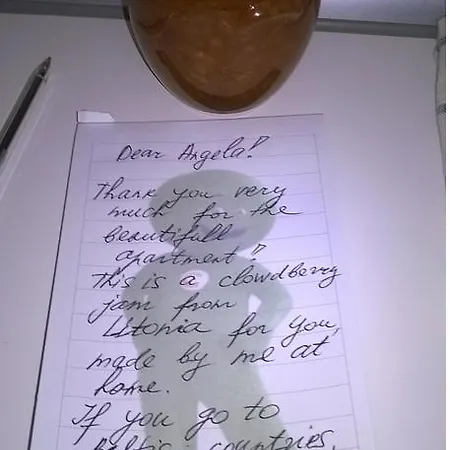 Dear Angela!
Thank you very
much for the
beautifull
apartment!
This is a clowdberry
jam from
for you,
made by me at
home.
If you go to
baltic countries,